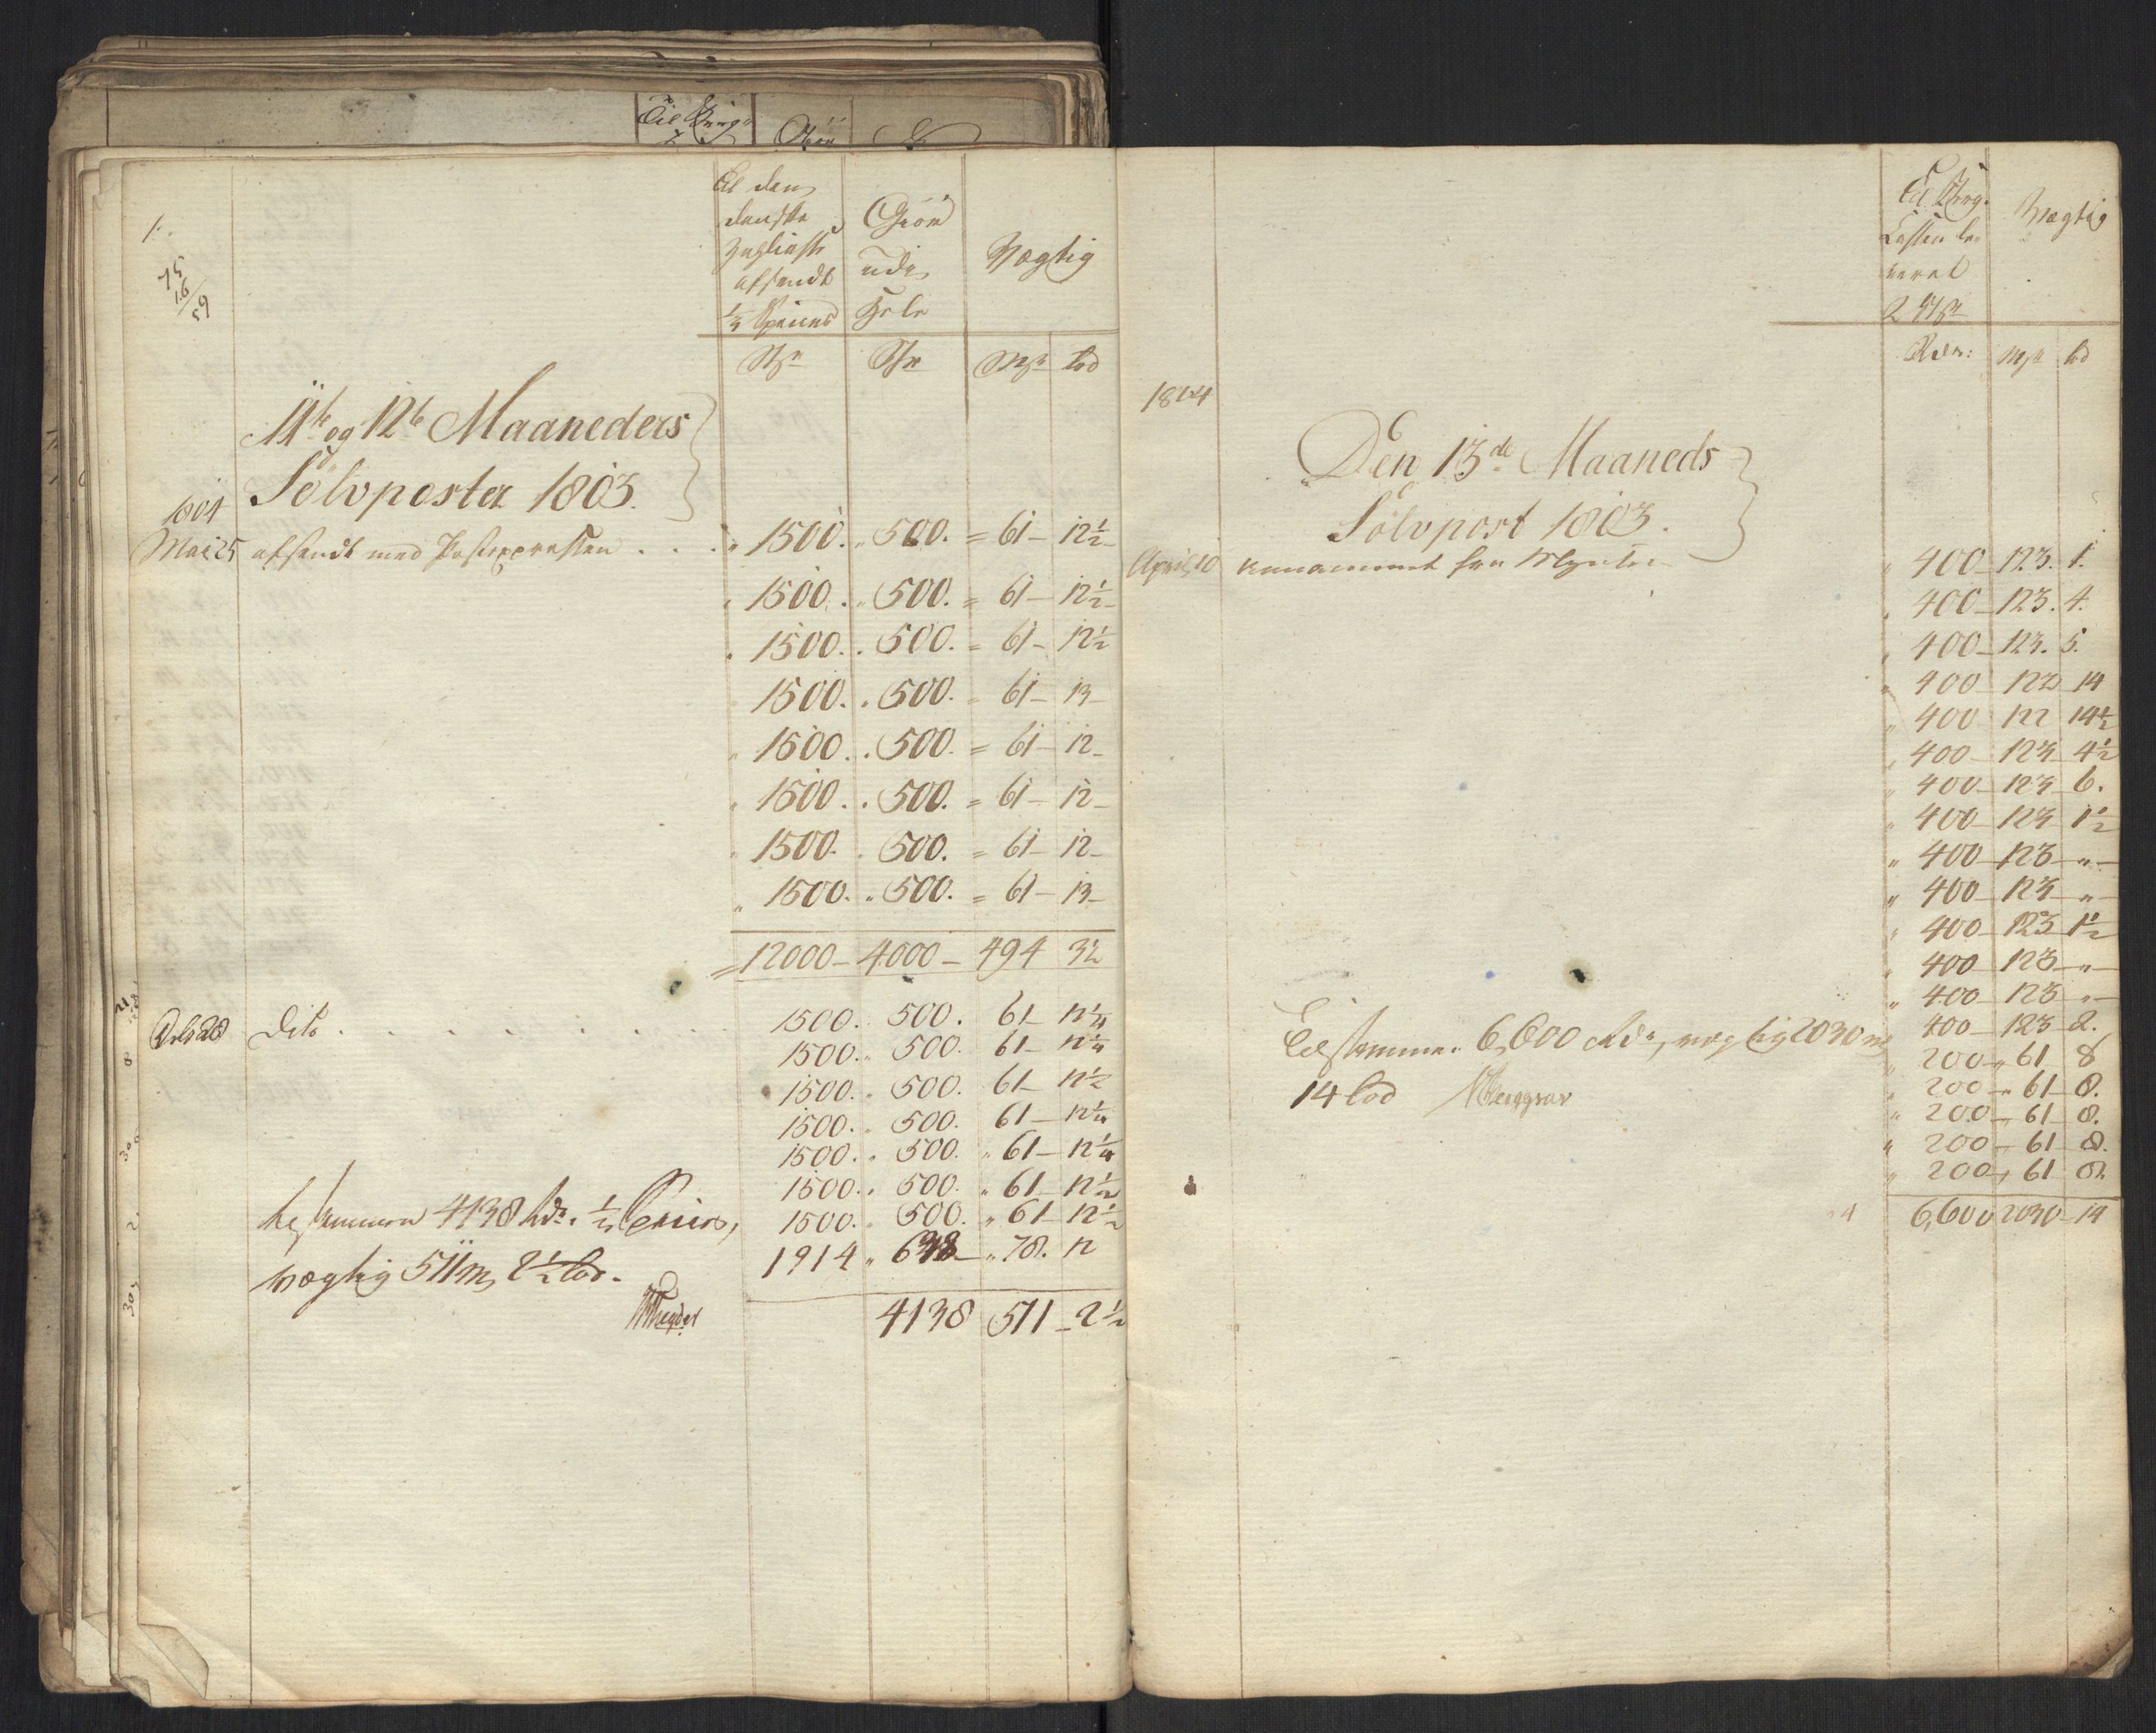 1.
75
16/
59
Til den
danske
afsendt
1/3 Species
Giör
udi
Hele
Vægtig
Stk
Stk
Mrk lod
11te og 12te Maaneders
Sölvposter 1803.
1804
Mai 25 afsendt med Postexpressen . . . " 1500. " 500. = 61 - 12 1/2
" 1500. " 500. = 61 - 12 1/2
" 1500. . 500. = 61 - 12 1/2
1500. . 500. = 61 - 13 -
" 1500. . 500. = 61 - 12 -
" 1500. . 500. = 61 - 12 -
1500. . 500. = 61 - 12 -
" 1500. " 500. = 61 - 13 -
= 12000 - 4000 - 494 3 1/2
Dito . . . . . . . 1500. 500. 61 - 12 1/4
1500. " 500. 61 - 12 1/4
1500. " 500. 61 - 12 1/2
1500. " 500. 61 - 12 1/4
1500. " 500. " 61 - 12 1/4
1500. " 500. " 61 - 12 1/2
1500. " 500. " 61 - 12 1/2
1914 " 638 - " 78. 12
4138 511 - 2 1/2
tilsammen 4138 Rdr. 1/3 Species,
vægtig 511 m, 2 1/2 lod.
Til Kong.
Kassen le-
veret
2 Stk
Vægtig
Rdr: Mrk lod
1804
Den 13de Maaneds
Sölvpost 1803.
April 10 annammet fra Mynten
" 400 - 123. 1.
" 400 - 123. 4.
" 400 - 123. 5.
" 400 - 122 14
" 400 122 14 1/2
" 400 - 123 4 1/2
" 400 - 123 - 6.
" 400 - 123 1 1/2
" 400 - 123 - " -
" 400 - 123 - " -
" 400 - 123 1 1/2
" 400 - 123 - " -
" 400 - 123 - " -
400 - 123 2.
Tilsammen 6,600 Rdr, vægtig 2030 m
14 lod
200 - " 61 8
" 200 - " 61 - 8.
" 200 - 61 8.
" 200 - 61 8.
" 200 - 61 8.
6,600 2030 - 14